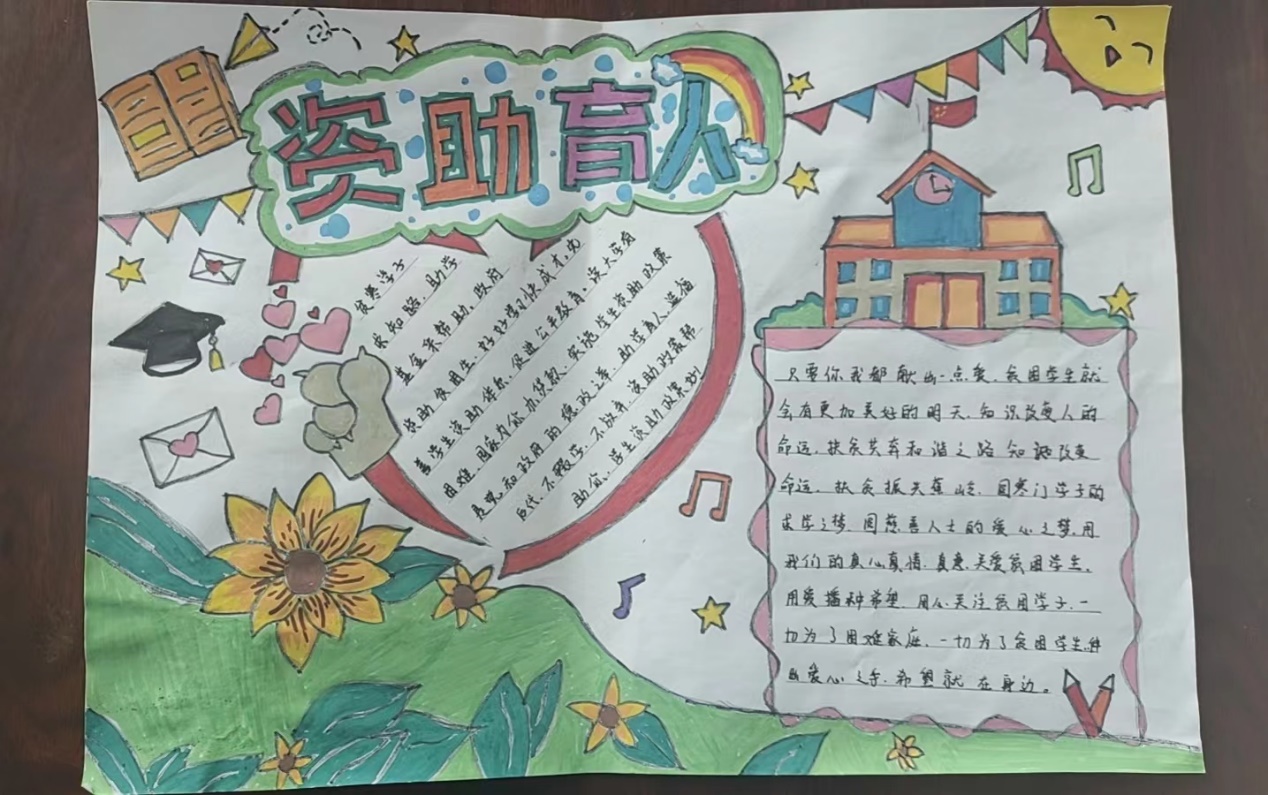 资助育人
贫寒学子
求知路,助学
基金来帮助。政府
资助贫困生,好好学习快成才。为
善学生资助体系,促进公平教育。读大学有
困难,国家为你办贷款。实施学生资助政策
是党和政府的德政之举。助学育人造福
后代,不辍学,不放弃,资助政策帮
助你。学生资助政策好
只要你我都献出一点爱,贫困学生就
会有更加美好的明天,知识改变人的
命运,扶贫共奔和谐之路,知识改变
命运,扶贫振天,圆寒门学子的
求学之梦,圆慈善人士的爱心之梦,用
我们的真心真情真意关爱贫困学生,
用爱播种希望,用心关注贫困学子,一
切为了困难家庭,一切为了贫困学生,伸
出爱心之手,希望就在身边。